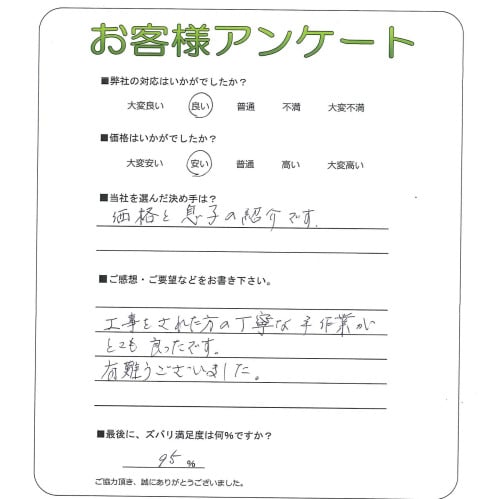 お客様アンケート
■弊社の対応はいかがでしたか?
大変良い 良い 普通 不満 大変不満
■価格はいかがでしたか?
大変安い 安い 普通 高い 大変高い
■当社を選んだ決め手は?
価格と息子の紹介です。
■ご感想・ご要望などをお書き下さい。
工事をされた方の丁寧な手作業が
とても良ったです。
有難うございました。
■最後に、ズバリ満足度は何%ですか?
95 %
ご協力頂き、誠にありがとうございました。